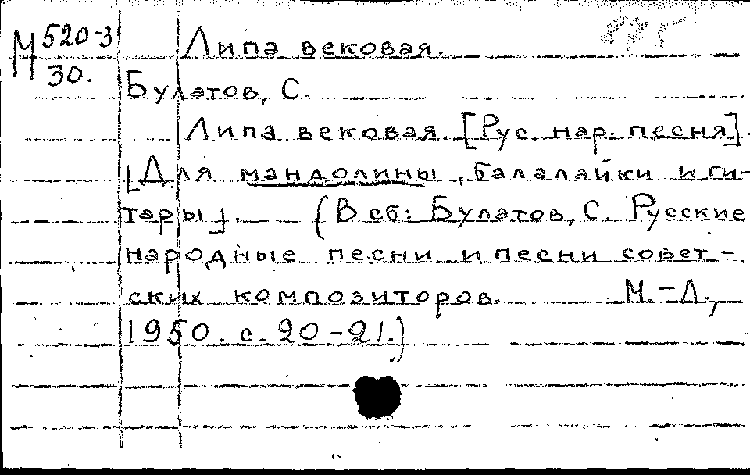 М 520-3 Липа вековая.
30.
Булатов, С.
Липа вековая [Рус. нар. песня].
[Для мандолины, балалайки и ги-
тары]. — (В сб: Булатов, С. Русские
народные песни и песни совет-
ских композиторов. М.-Л.,
1950. с. 20-21.)